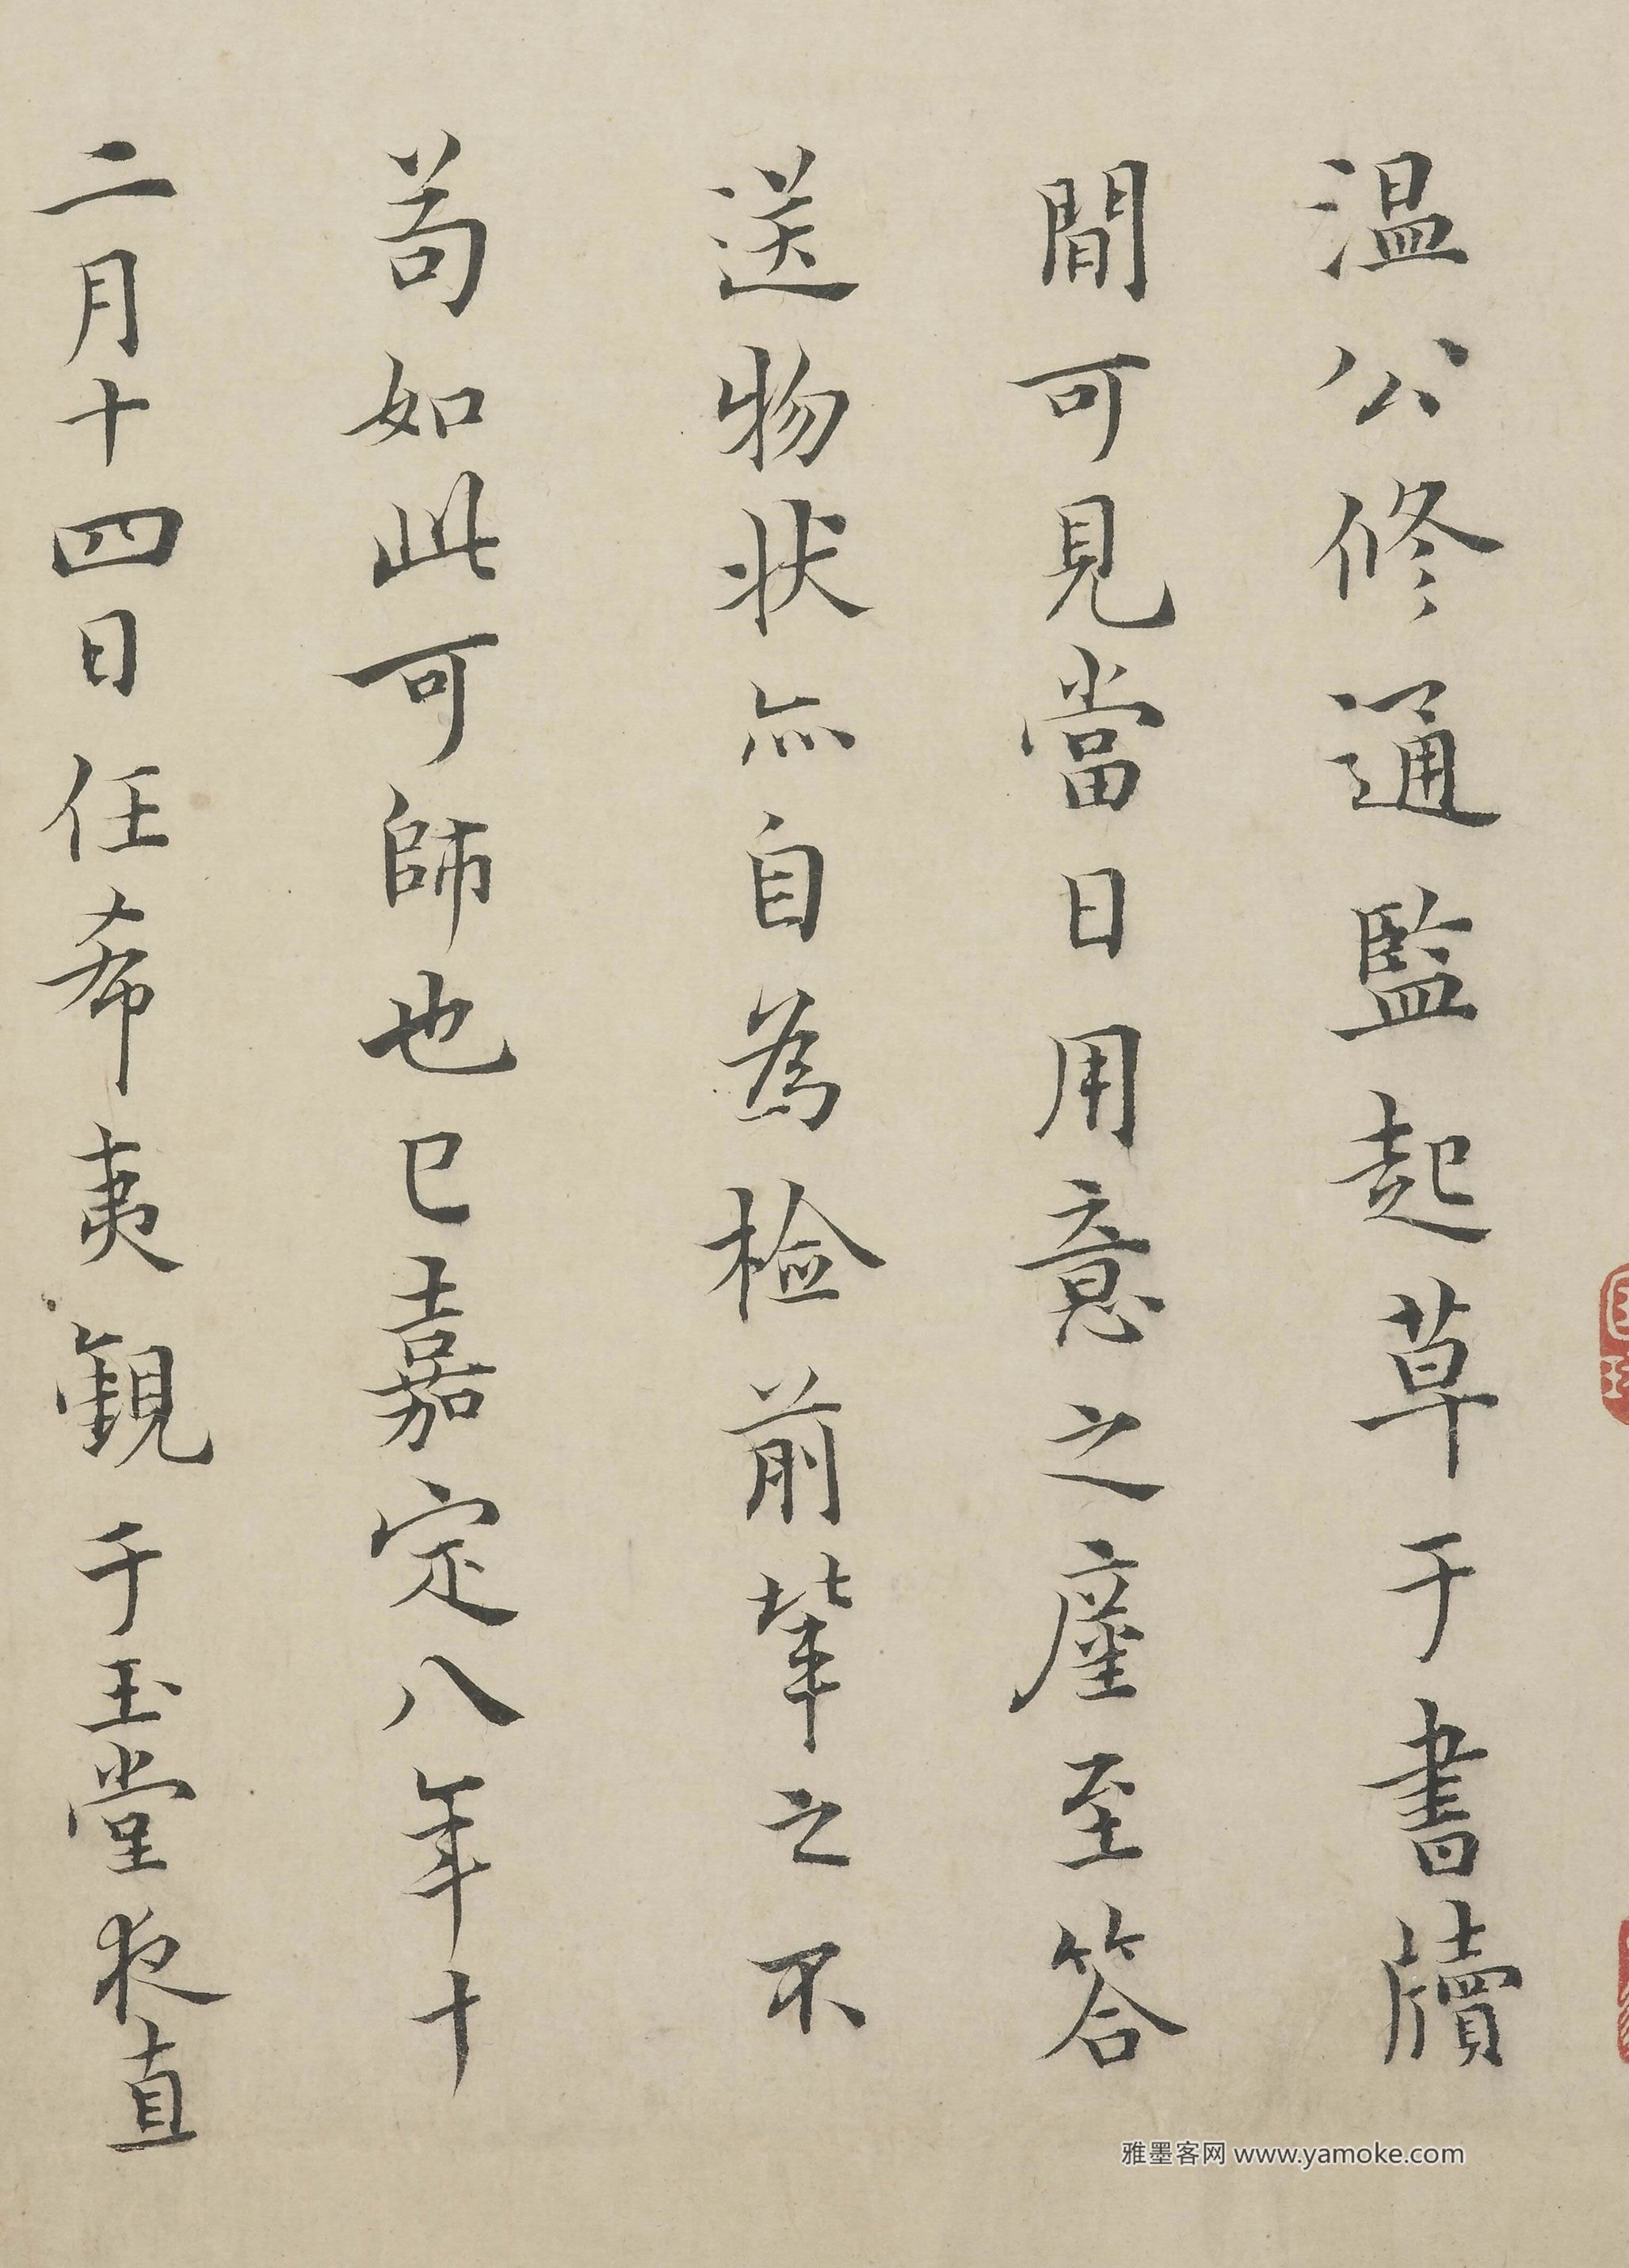 温公修通監起草于書牘
間可見當日用意之㕓至答
送物状亦自為检前輩之不
苟如此可師也已嘉定八年十
二月十四日任希夷観于玉堂夜直
雅墨客网 www.yamoke.com